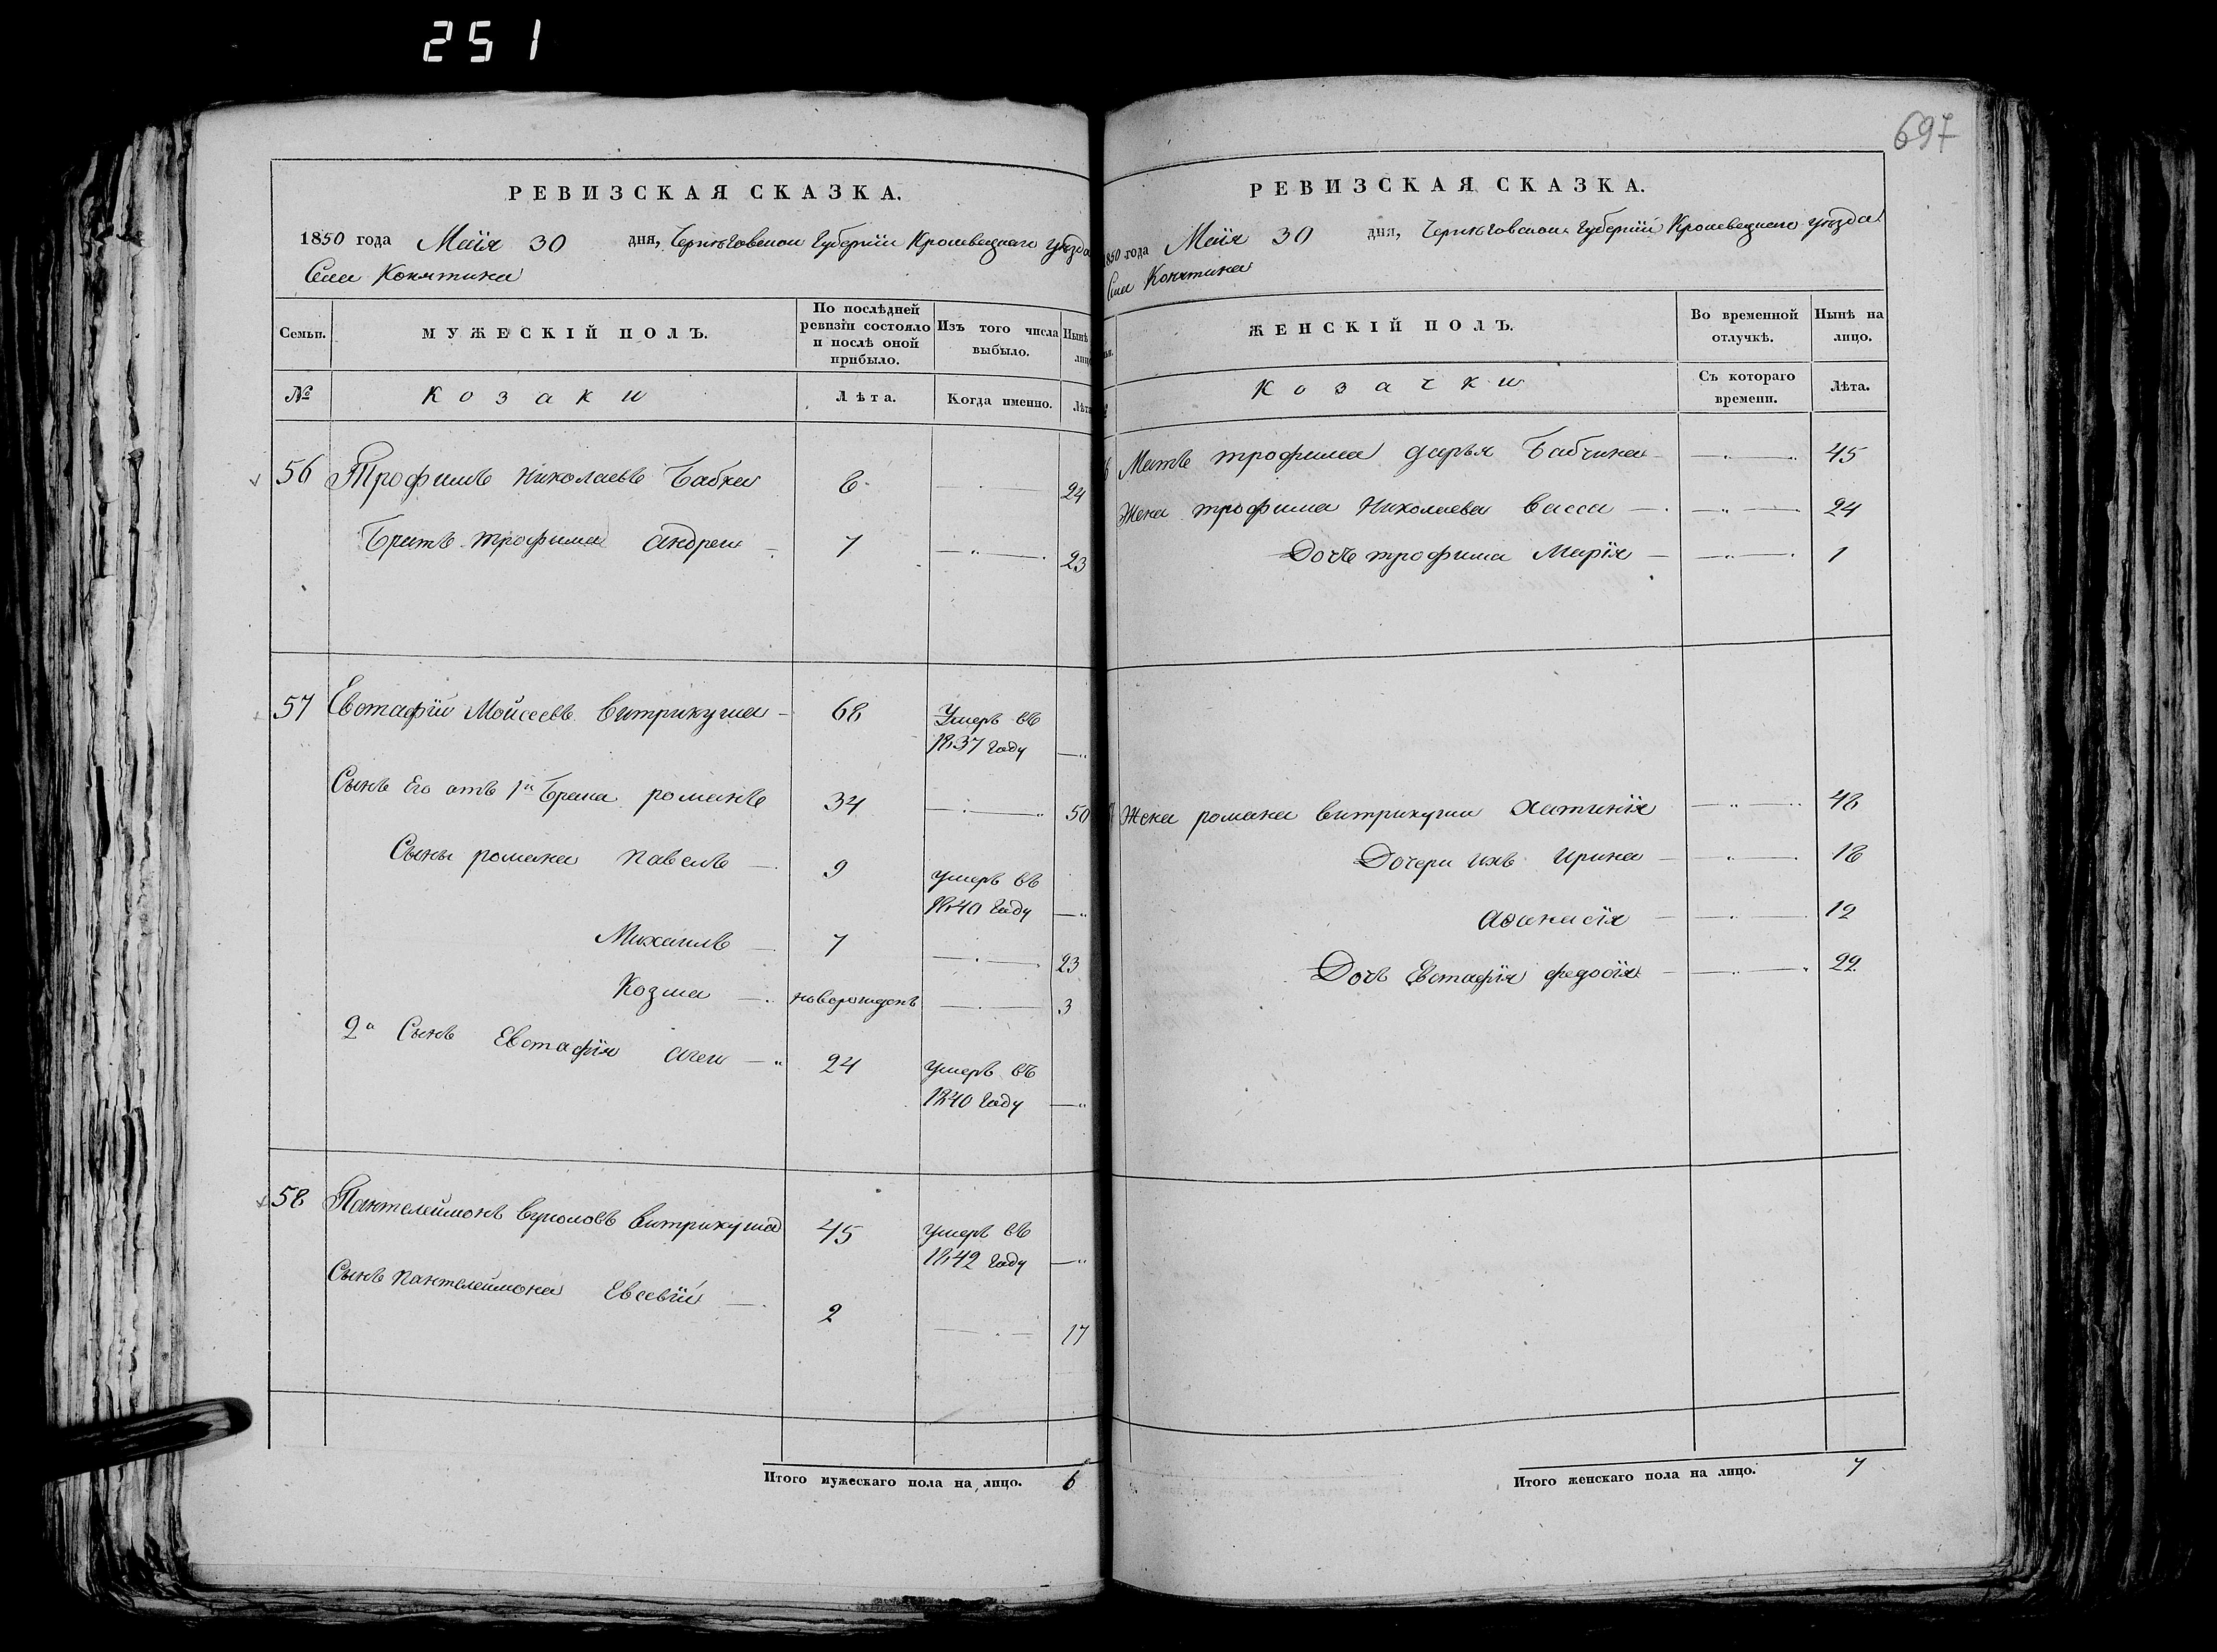 251
697
РЕВИЗСКАЯ СКАЗКА.
1850 года Маія 30 дня, Черниговской Губерніи Кролевецкаго уѣзда
Села Конятина
Семьи. МУЖЕСКІЙ ПОЛЪ. По послѣдней ревизіи состояло и послѣ оной прибыло. Изъ того числа выбыло. Нынѣ на лицо
№ Козаки Лѣта. Когда именно. Лѣта
56 Трофимъ Николаевъ Бабка 6 24
Братъ трофима андрей 7 23
57 Евстафій Мойсеевъ витрикуша 68 Умеръ въ
1837 году
Сынъ Его отъ 1й Брака романъ 34 50
Сыны романа павелъ 9 умеръ въ
1840 году
Михаилъ 7 23
Козма новорожденъ 3
2й Сынъ Евстафія 24 умеръ въ
1840 году
58 Пантелеймонъ вуколовъ витрикуша 45 умеръ въ
1842 году
Сынъ пантелеймона Евсевій 2 17
Итого мужескаго пола на лицо. 6
РЕВИЗСКАЯ СКАЗКА.
1850 года Маія 30 дня, Черниговской Губерніи Кролевецкаго уѣзда
Села Конятина
ЖЕНСКІЙ ПОЛЪ. Во временной отлучкѣ. Нынѣ на лицо.
Козачки Съ котораго времени. Лѣта.
Мать трофима дарья Бабчина 45
Жена трофима Николаева васса 24
Дочь трофима Марія 1
Жена романа витрикуши Хатинія 48
Дочери ихъ ирина 18
аѳанасія 12
Дочь Евстафія федосія 22
Итого женскаго пола на лицо. 7